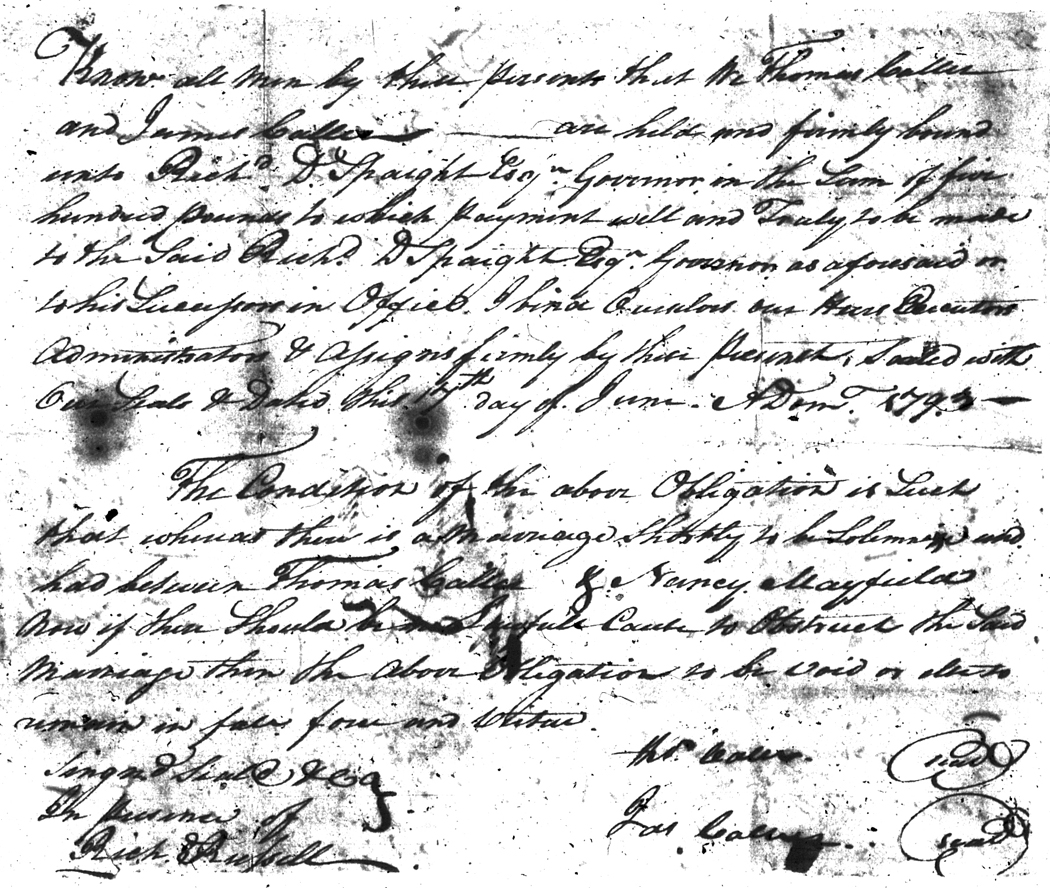 Know all Men by these presents that We Thomas Caller
and James Caller are held and firmly bound
unto Richd. D Spaight Esqr. Governor in the Sum of five
hundred pounds to which payment well and Truly to be made
to the Said Richd. D Spaight Esqr. Governor as aforesaid or
to his Successors in Office. I bind Ourselves our Heirs Executors
Administrators & Assigns firmly by these Presents, Sealed with
Our Seals & Dated this 17th day of June. A Dom. 1793
The Condition of the above Obligation is Such
that whereas there is a Marriage Shortly to be Solemnize and
had between Thomas Caller & Nancy Mayfield
Now if there Should be no Lawfull Cause to Obstruct the Said
Marriage then the above Obligation to be Void or else to
remain in full force and Virtue
Singnd Seald & C
In Presence of
Richd Russell
Thos. Caller. seal
Jas Caller seal